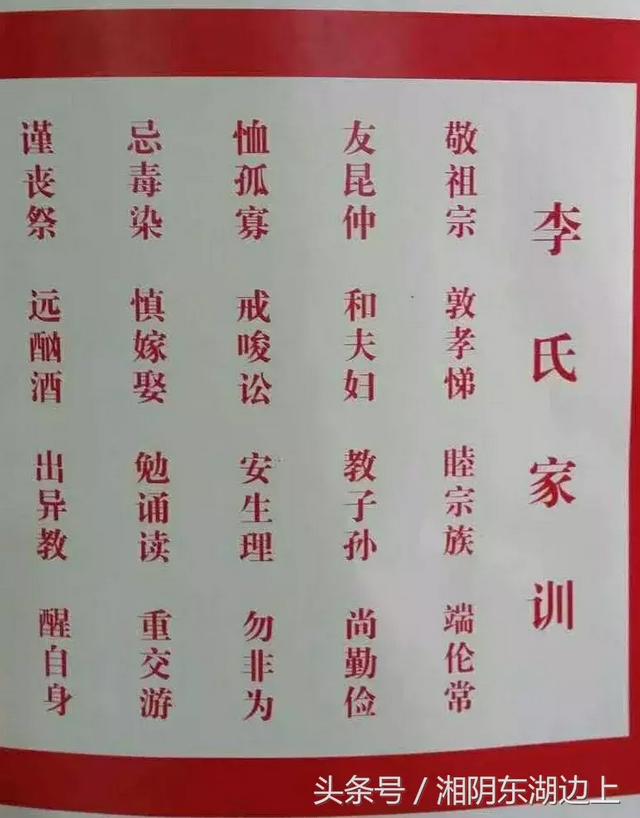 李氏家训
敬祖宗 敦孝悌 睦宗族 端伦常
友昆仲 和夫妇 教子孙 尚勤俭
恤孤寡 戒唆讼 安生理 勿非为
忌毒染 慎嫁娶 勉诵读 重交游
谨丧祭 远酗酒 出异教 醒自身
头条号 / 湘阴东湖边上